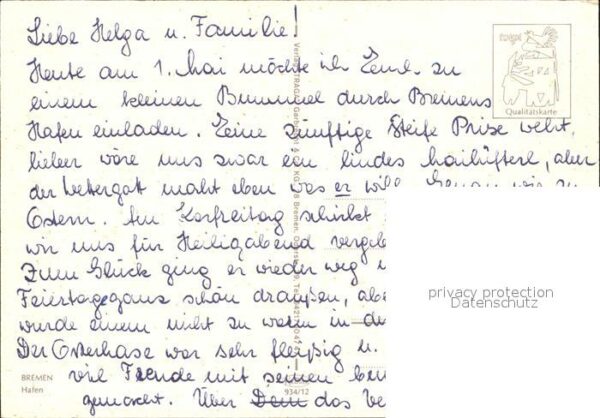 Liebe Helga u. Familie!
Heute am 1. Mai möchte ich Euch zu
einem kleinen Bummel durch Bremens
Hafen einladen. Eine zünftige Steife Prise weht,
lieber wäre uns zwar ein lindes Mailüfterl, aber
der Wettergott macht eben was er will. Genau wie zu
Ostern. Am Karfreitag schickt
wir uns für Heiligabend vergeb
Zum Glück ging er wieder weg
Feiertage ganz schön draußen, abe
wurde einem nicht zu warm in de
Der Osterhase war sehr fleißig u.
viel Freude mit seinen
gemacht. Über Dem das
Qualitätskarte
privacy protection
Datenschutz
BREMEN
Hafen
934/12